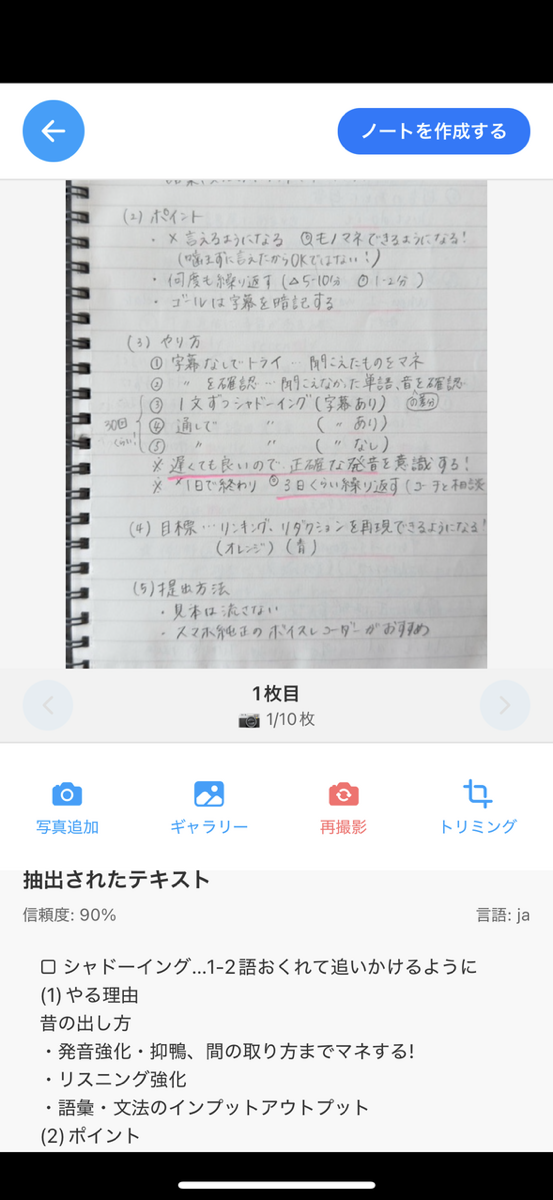 ノートを作成する
(2) ポイント
・× 言えるようになる ◎モノマネできるようになる!
(噛まずに言えたからOKではない!)
・何度も繰り返す (△5-10分 ◎1-2分)
・ゴールは字幕を暗記する
(3) やり方
① 字幕なしでトライ… 聞こえたものをマネ
② 〃 を確認… 聞こえなかった単語、音を確認
③ 1文ずつシャドーイング (字幕あり)
30回くらい! ④ 通しで 〃 (〃 あり)
⑤ 〃 〃 (〃 なし)
※ 遅くても良いので、正確な発音を意識する!
※ ×1日で終わり ◎3日くらい繰り返す (コーチと相談
(4) 目標… リンキング、リダクションを再現できるようになる!
(オレンジ) (青)
(5) 提出方法
・見本は流さない
・スマホ純正のボイスレコーダーがおすすめ
1枚目
1/10枚
写真追加 ギャラリー 再撮影 トリミング
抽出されたテキスト
信頼度: 90% 言語: ja
□ シャドーイング...1-2語おくれて追いかけるように
(1)やる理由
昔の出し方
・発音強化・抑鴨、間の取り方までマネする!
・リスニング強化
・語彙・文法のインプットアウトプット
(2)ポイント